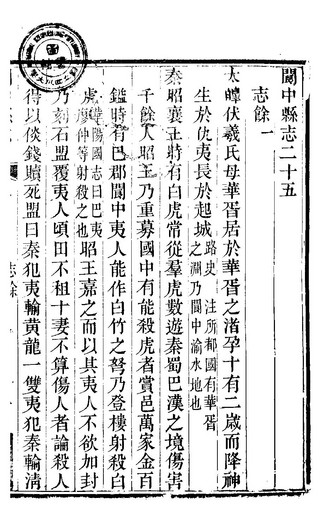 閬中縣志二十五
志餘一
太皞伏羲氏母華胥居於華胥之渚孕十有二歲而降神
生於仇夷長於起城路史注所都國有華胥
之淵乃閬中渝水地也
秦昭襄王時有白虎常從羣虎數遊秦蜀巴漢之境傷害
千餘人昭王乃重募國中有能殺虎者賞邑萬家金百
鎰時有巴郡閬中夷人能作白竹之弩乃登樓射殺白
虎華陽國志曰巴夷
廖仲等射殺之也昭王嘉之而以其夷人不欲加封
乃刻石盟覆夷人頃田不租十妻不算傷人者論殺人
得以倓錢贖死盟曰秦犯夷輸黃龍一雙夷犯秦輸清
志餘